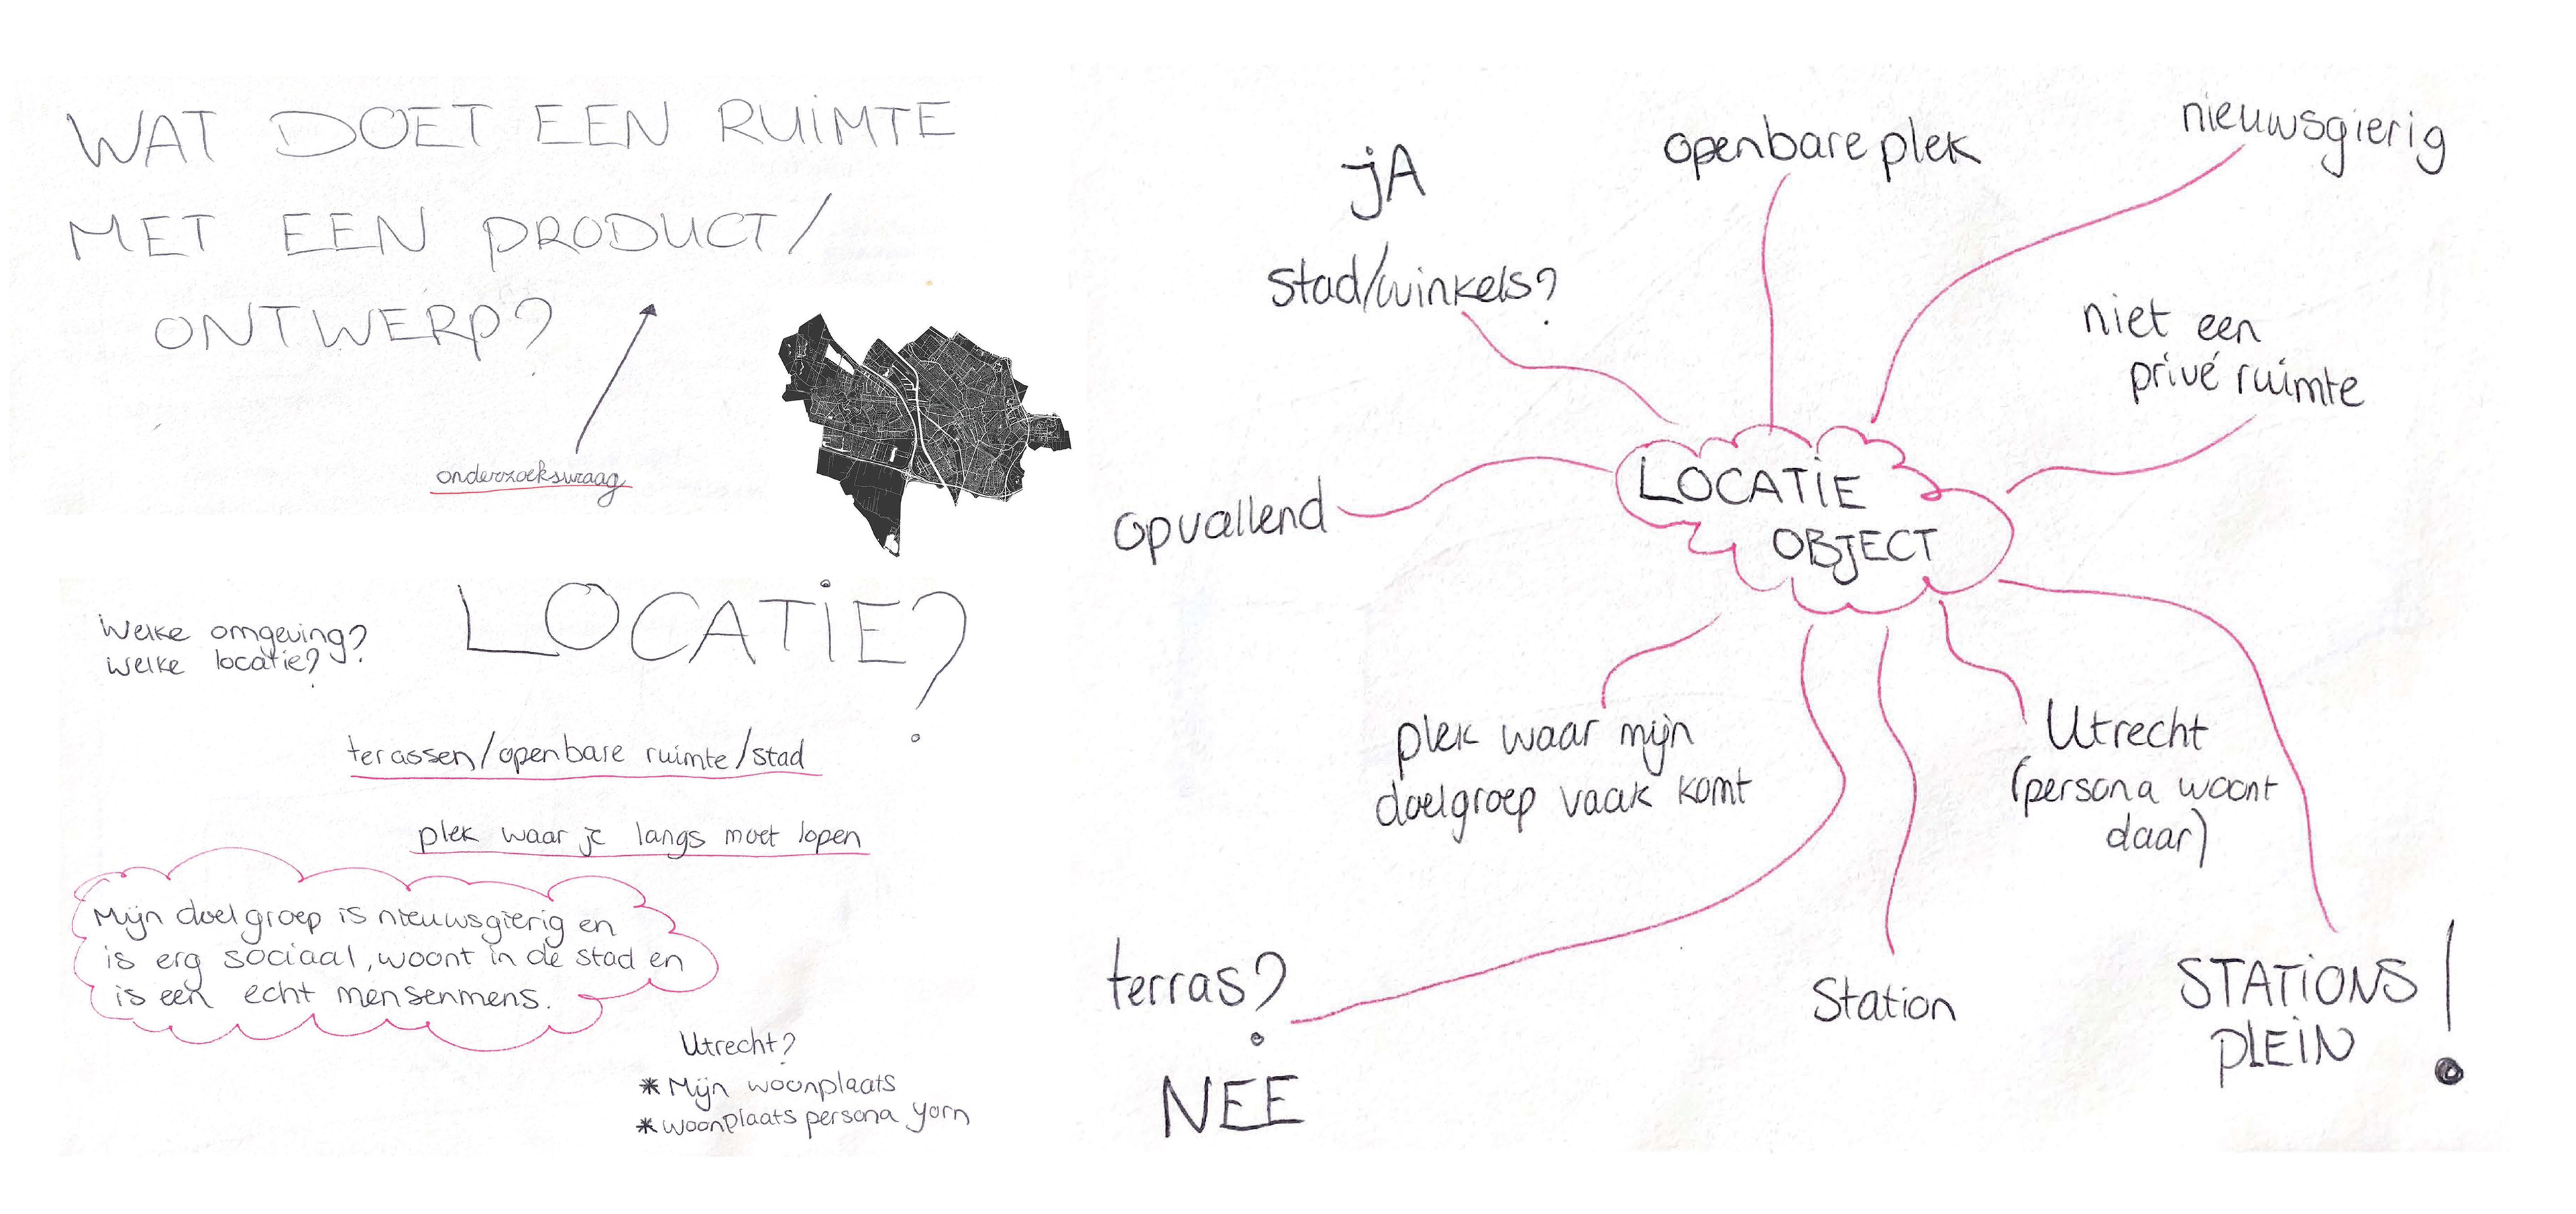 WAT DOET EEN RUIMTE
MET EEN PRODUCT/
ONTWERP?
onderzoeksvraag
LOCATIE?
Welke omgeving?
welke locatie?
terassen/openbare ruimte/stad
plek waar je langs moet lopen
Mijn doelgroep is nieuwsgierig en
is erg sociaal, woont in de stad en
is een echt mensenmens.
Utrecht?
* Mijn woonplaats
* woonplaats persona yorn
jA
stad/winkels?
openbare plek
nieuwsgierig
niet een
privé ruimte
opvallend
LOCATIE
OBJECT
plek waar mijn
doelgroep vaak komt
Utrecht
(persona woont
daar)
terras?
NEE
Station
STATIONS
PLEIN!